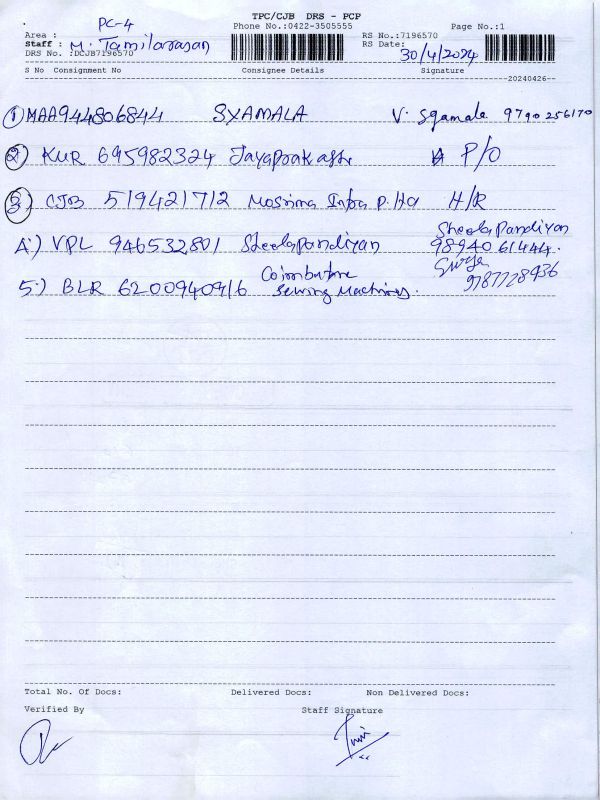 TPC/CJB DRS - PCP
PC-4 Phone No.:0422-3505555 Page No.:1
Area : RS No.:7196570
Staff : M. Tamilarasan RS Date: 30/4/2024
DRS No. :DCJB7196570
S No Consignment No Consignee Details Signature
20240426--
1 MAA944806844 SYAMALA V. Syamala 9790256170
2 KUR 695982324 Jayaprakash P/O
3 CJB 519421712 Infra P. Ltd H/R
4) VPL 946532801 Sheelapandiyan Sheelapandiyan 98940 61444.
5.) BLR 6200940916 Coimbatore Sewing Machines. 9787728936
Total No. Of Docs: Delivered Docs: Non Delivered Docs:
Verified By Staff Signature